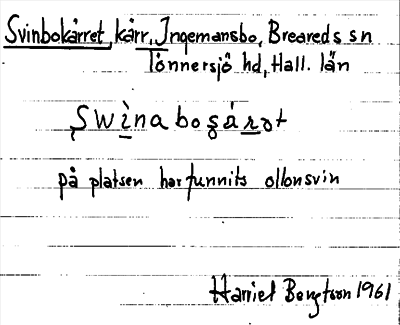 Svinbokärret, kärr, Ingemansbo, Breareds sn
Tönnersjö hd, Hall. län
Swinabogárǝt
på platsen har funnits ollonsvin
Harriet Bengtson 1961